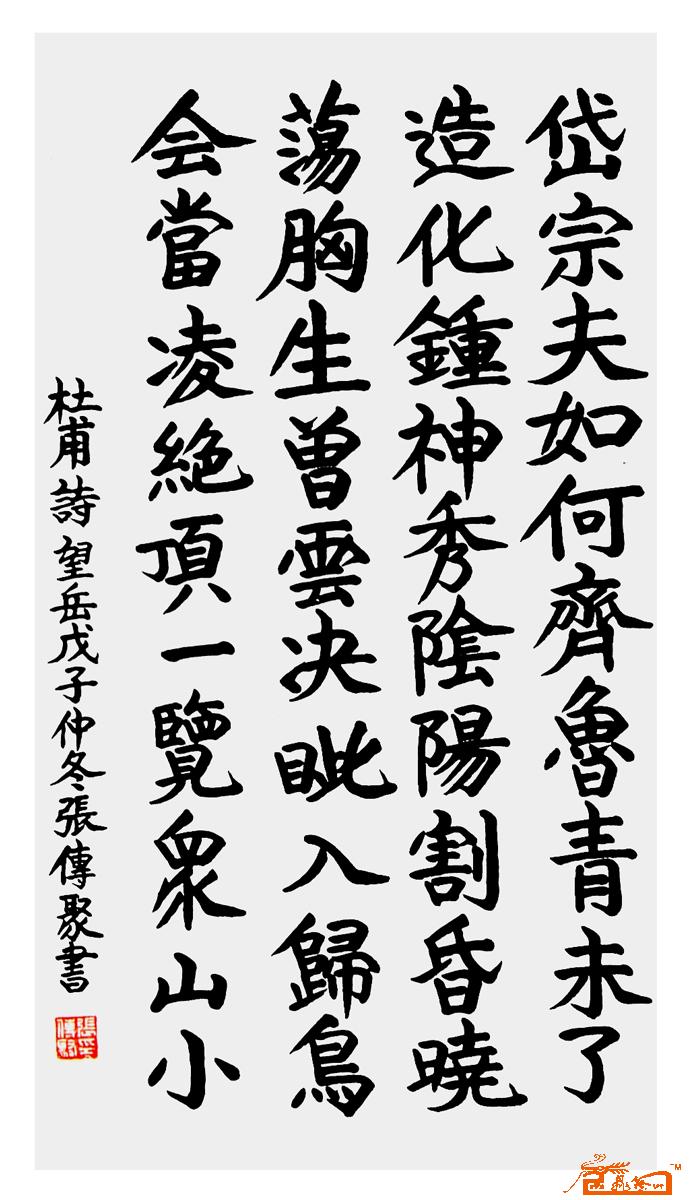 岱宗夫如何齊魯青未了
造化鍾神秀陰陽割昏曉
蕩胸生曾雲决眦入歸鳥
会當凌絶頂一覽衆山小
杜甫詩望岳戊子仲冬張傳聚書